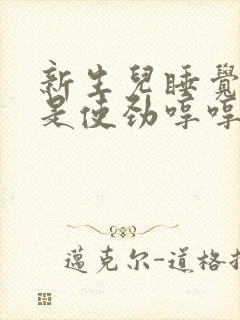 新生兒睡覺
是使勁哼哼
邁克尔-道格拉